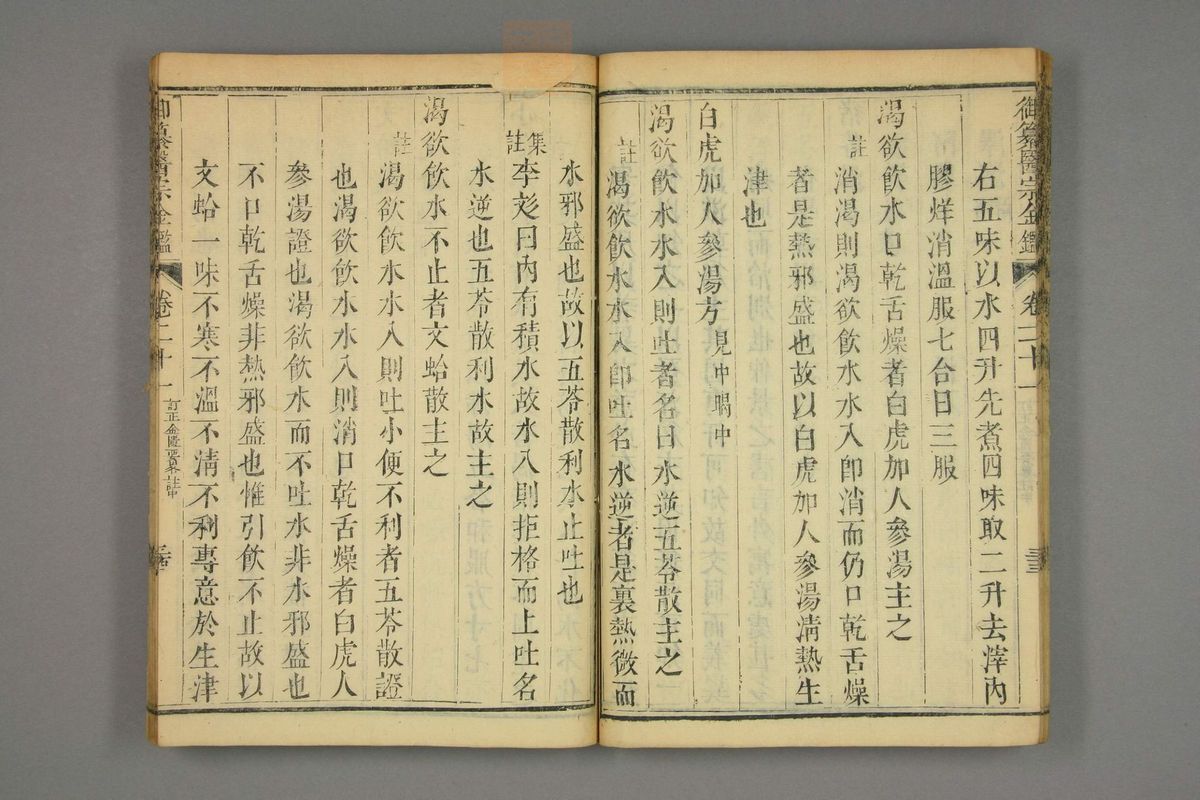 御纂醫宗金鑑 卷二十一 三三
右五味以水四升先煮四味取二升去滓內
膠烊消溫服七合日三服
渴欲飲水口乾舌燥者白虎加人參湯主之
註 消渴則渴欲飲水水入卽消而仍口乾舌燥
者是熱邪盛也故以白虎加人參湯淸熱生
津也
白虎加人參湯方 見中暍中
渴欲飲水水入則吐者名曰水逆五苓散主之
註 渴欲飲水水入卽吐名水逆者是裏熱微而
水邪盛也故以五苓散利水止吐也
集註 李彣曰內有積水故水入則拒格而上吐名
水逆也五苓散利水故主之
渴欲飲水不止者文蛤散主之
註 渴欲飲水水入則吐小便不利者五苓散證
也渴欲飲水水入則消口乾舌燥者白虎人
參湯證也渴欲飲水而不吐水非水邪盛也
不口乾舌燥非熱邪盛也惟引飲不止故以
文蛤一味不寒不溫不淸不利專意於生津
御纂醫宗金鑑 卷二十一 訂正金匱要畧註中